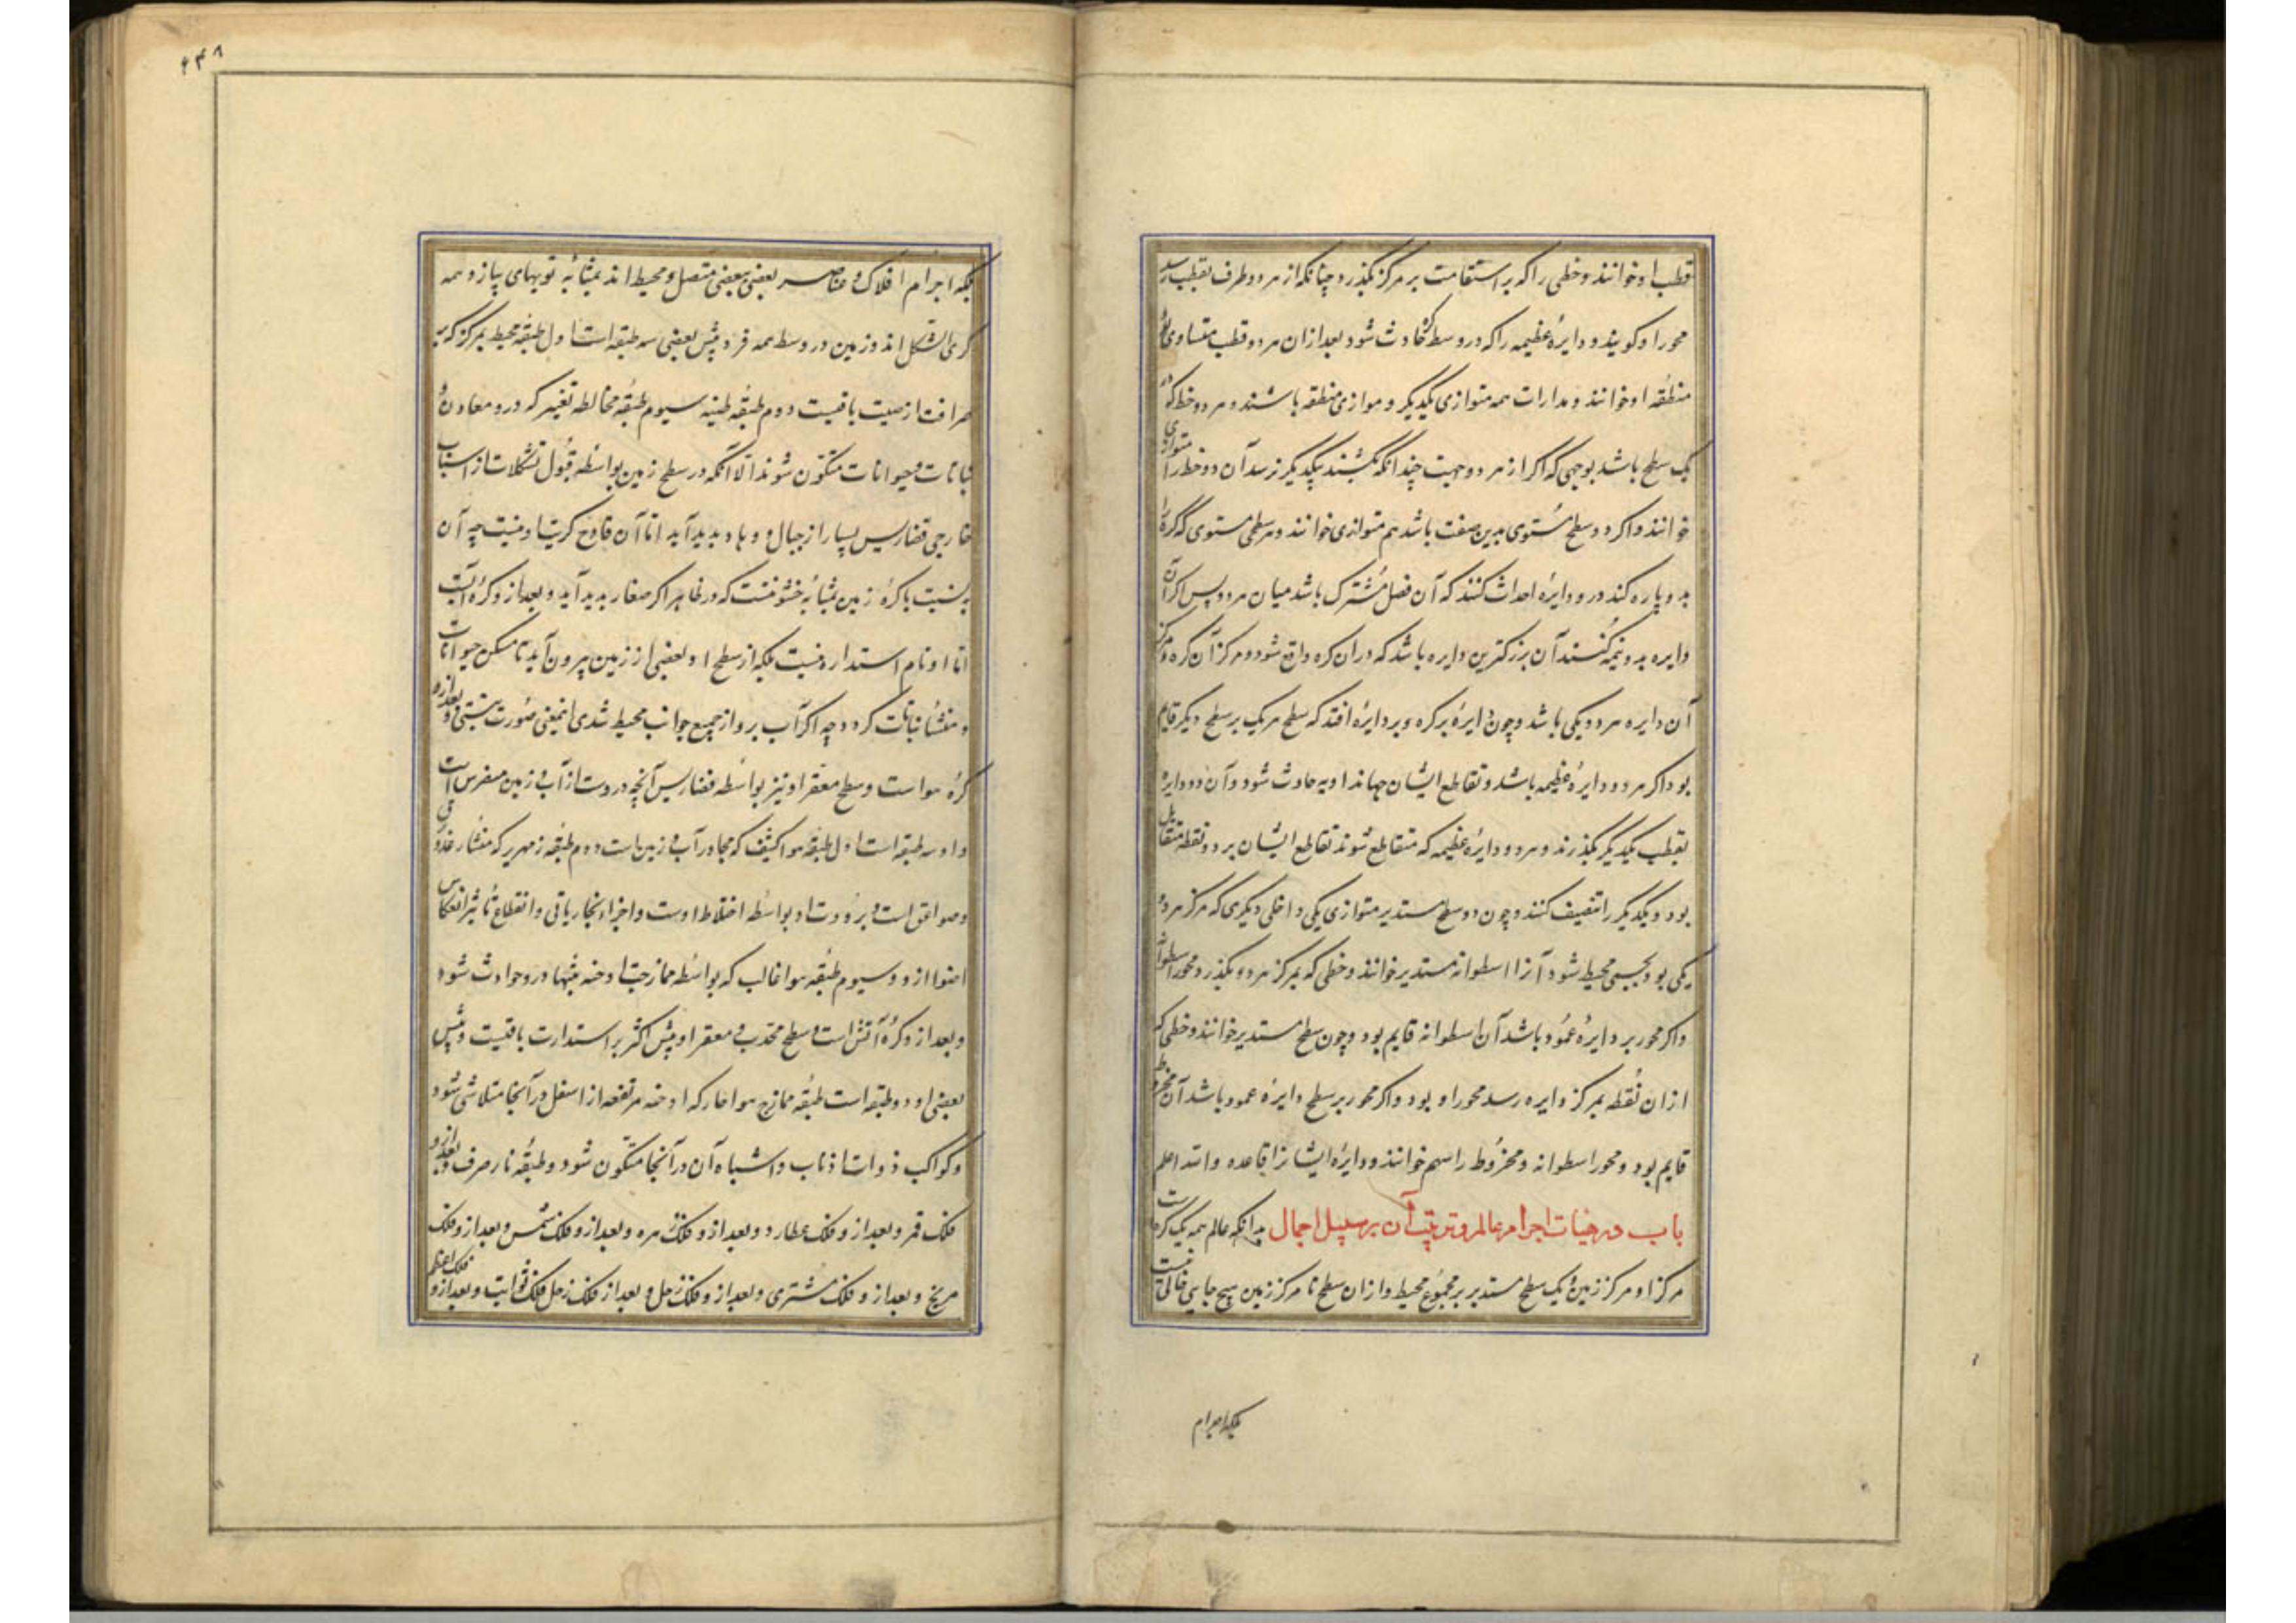 قطب او خوانند و خطی را که بر استقامت بر مرکز بگذرد چنانکه از هر دو طرف بقطب رسد
محور او گویند و دایرهٔ عظیمه را که در وسط کره حادث شود بعد از ان هر دو قطب متساوی بود
منطقه او خوانند و مدارات همه متوازی یکدیگر و موازی منطقه باشند و هر دو خط که در
یک سطح باشد بوجهی که اگر از هر دو جهت چندانکه بکشند بیکدیگر نرسد آن دو خط را متوازی
خوانند و اگر دو سطح مستوی بدین صفت باشد هم متوازی خوانند و هر سطحی مستوی که کره را
بدو پاره کند درو دایرهٔ احداث کنند که آن فصل مشترک باشد میان هر دو پس اگر آن
دایره بدو نیمه کنند آن بزرکترین دایره باشد که در ان کره واقع شود و مرکز آن کره و مرکز
آن دایره هر دو یکی باشد و چون دایرهٔ بر کره و بر دایرهٔ افتد که سطح هر یک بر سطح دیگر قایم
بود اگر هر دو دایرهٔ عظیمه باشد و تقاطع ایشان چهار زاویه حادث شود و آن دو دایره
بقطب یکدیگر بگذرند و هر دو دایرهٔ عظیمه که متقاطع شوند تقاطع ایشان بر دو نقطه متقابل
بود و یکدیگر را تنصیف کنند و چون دو سطح مستدیر متوازی یکی داخلی دیگری که مرکز هر دو
یکی بود بجسمی محیط شود آنرا اسطوانه مستدیر خوانند و خطی که بمرکز هر دو بگذرد محور اسطوانه
و اگر محور بر دایرهٔ عمود باشد آن اسطوانه قایم بود و چون سطح مستدیر خوانند و خطی که
از ان نقطه بمرکز دایره رسد محور او بود و اگر محور بر سطح دایرهٔ عمود باشد آن مخروط
قایم بود و محور اسطوانه و مخروط را سهم خوانند و دایرهٔ ایشانرا قاعده والله اعلم
باب در هیات اجرام عالم و ترتیب آن بر سبیل اجمال بدانکه عالم همه یک کره است
مرکز او مرکز زمین و یک سطح مستدیر بر مجموع محیط و از ان سطح تا مرکز زمین هیچ جایی خالی نیست
بلکه اجرام
۴۳۸
بلکه اجرام افلاک و عناصر بعضی ببعضی متصل و محیط اند بمثابه تویهای پیاز و همه
کری الشکل اند و زمین در وسط همه فرو و پیش بعضی سه طبقه است اول طبقه محیط بمرکز که بر
صرافت ارضیت باقیست دوم طبقه طینیه سیوم طبقه مخالطه بغیر که درو معادن و
نباتات و حیوانات متکون شوند الا آنکه در سطح زمین بواسطه قبول تشکلات از اسباب
خارجی تضاریس بسیار از جبال و وهاد پدید آید اما آن قادح کریت او نیست چه آن
بنسبت با کره زمین بمثابه خشونتست که در ظاهر اکر صغار پدید آید و بعد ازو کرهٔ آبست
اما او تام استداره نیست بلکه از سطح او بعضی از زمین بیرون آید تا مسکن حیوانات
و منشأ نباتات کردد چه اگر آب برو از جمیع جوانب محیط شدی این معنی صورت نبستی و بعد ازو
کرهٔ هوا است و سطح مقعر او نیز بواسطه تضاریس آنچه دروست از آب و زمین مضرس است
و او سه طبقه است اول طبقه هوا کثیف که مجاور آب و زمین است دوم طبقه زمهریر که منشأ رعد و برق
و صواعق است و برودت او بواسطه اختلاط اوست و اجزاء بخار باقی و انقطاع تأثیر انعکاس
اضوا ازو و سیوم طبقه هوا غالب که بواسطه ممازجت او دخنه شبها درو حوادث شود
و بعد ازو کرهٔ آتش است و سطح محدب و مقعر او پیش اکثر بر استدارت باقیست و پیش
بعضی او دو طبقه است طبقه ممازج هوا حار که ادخنه مرتفعه از اسفل در آنجا متلاشی شود
و کواکب ذوات اذناب و اشباه آن در آنجا متکون شود و طبقه نار صرف و بعد ازو
فلک قمر و بعد ازو فلک عطارد و بعد ازو فلک زهره و بعد ازو فلک شمس و بعد ازو فلک
مریخ و بعد ازو فلک مشتری و بعد ازو فلک زحل و بعد از فلک زحل فلک ثوابت و بعد ازو فلک اعظم